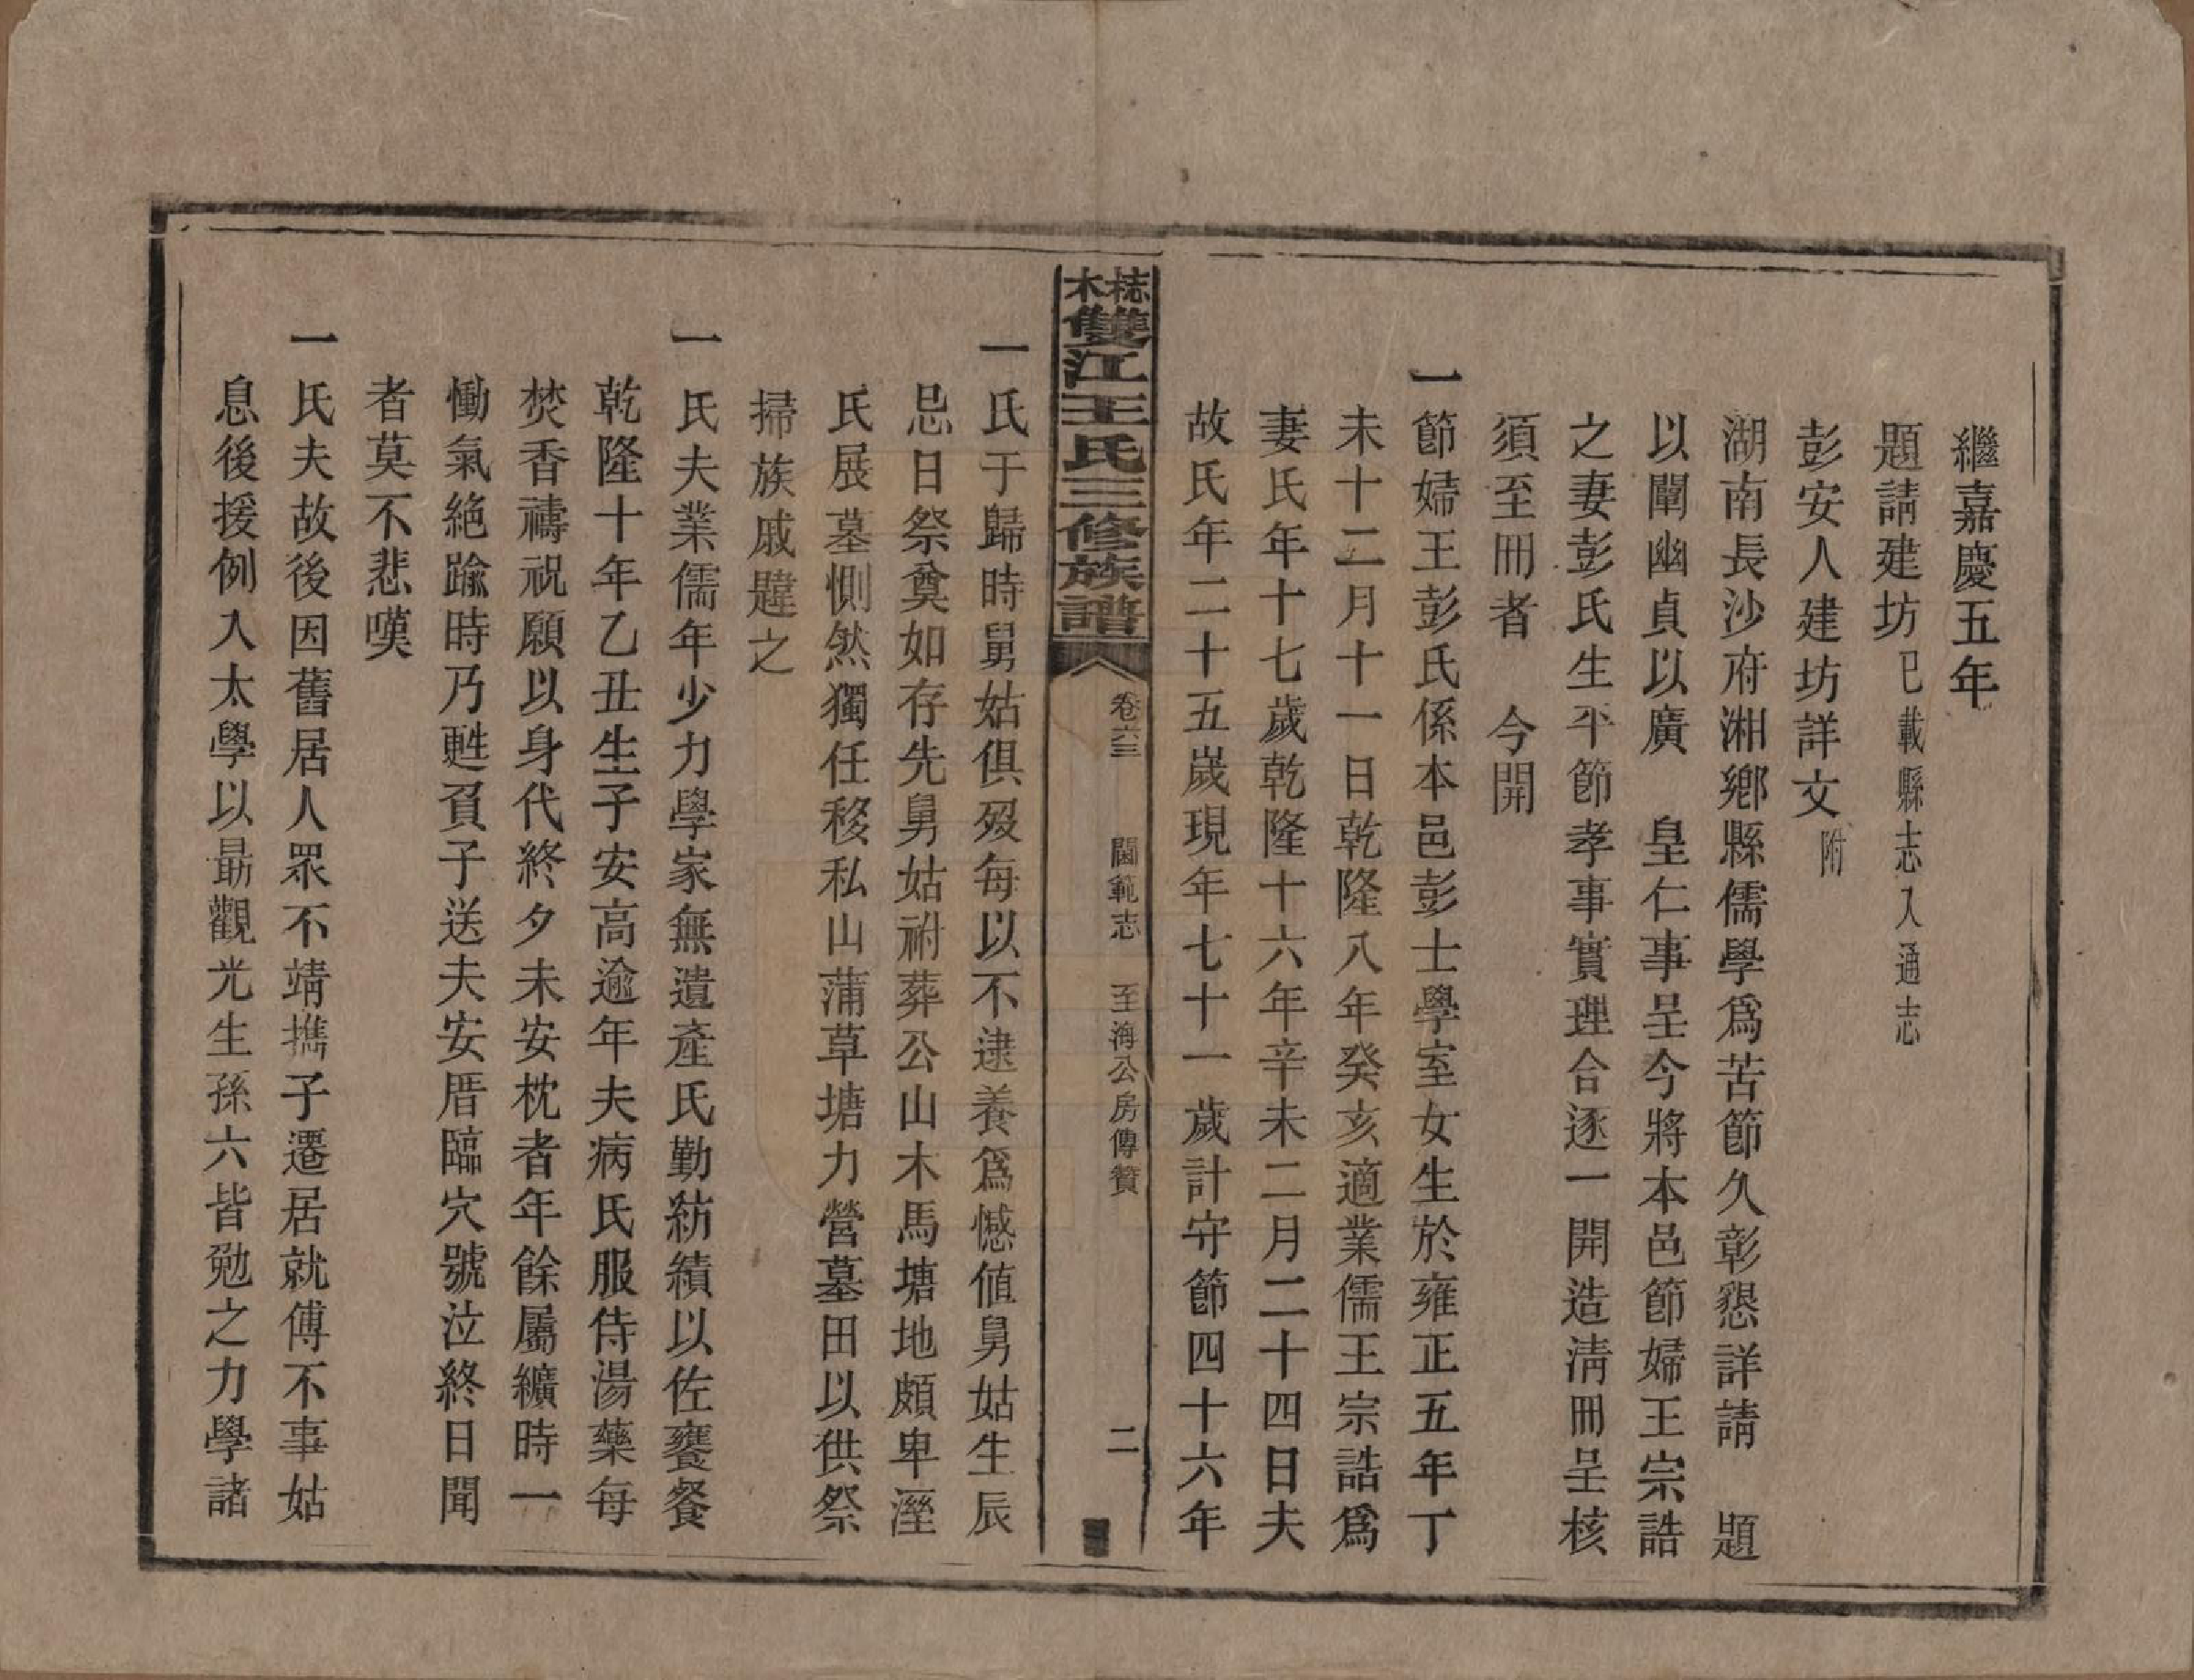 繼嘉慶五年
題請建坊已載縣志入通志
彭安人建坊詳文附
湖南長沙府湘鄉縣儒學爲苦節久彰懇詳請　題
以闡幽貞以廣　皇仁事呈今將本邑節婦王宗誥
之妻彭氏生平節孝事實理合逐一開造淸冊呈核
須至冊者　今開
一節婦王彭氏係本邑彭士學室女生於雍正五年丁
未十二月十一日乾隆八年癸亥適業儒王宗誥爲
妻氏年十七歲乾隆十六年辛未二月二十四日夫
故氏年二十五歲現年七十一歲計守節四十六年
梽木雙江王氏三修族譜
卷六三　閫範志　至海公房傳贊　二
一氏于歸時舅姑俱歿每以不逮養爲憾値舅姑生辰
忌日祭奠如存先舅姑祔葬公山木馬塘地頗卑溼
氏展墓惻然獨任移私山蒲草塘力營墓田以供祭
掃族戚韙之
一氏夫業儒年少力學家無遺產氏勤紡績以佐饔餐
乾隆十年乙丑生子安高逾年夫病氏服侍湯藥每
焚香禱祝願以身代終夕未安枕者年餘屬纊時一
慟氣絶踰時乃甦負子送夫安厝臨穴號泣終日聞
者莫不悲嘆
一氏夫故後因舊居人眾不靖攜子遷居就傅不事姑
息後援例入太學以最觀光生孫六皆勉之力學諸